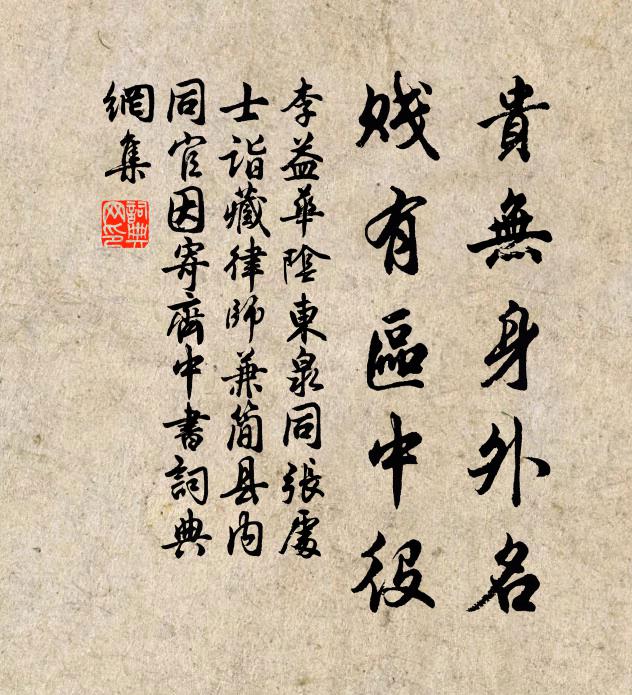 貴無身外名
賤有區中役
李益華陰東泉同張處
士詣藏律師兼简县内
同官因寄齊中書詞典
網集
詞典
网印